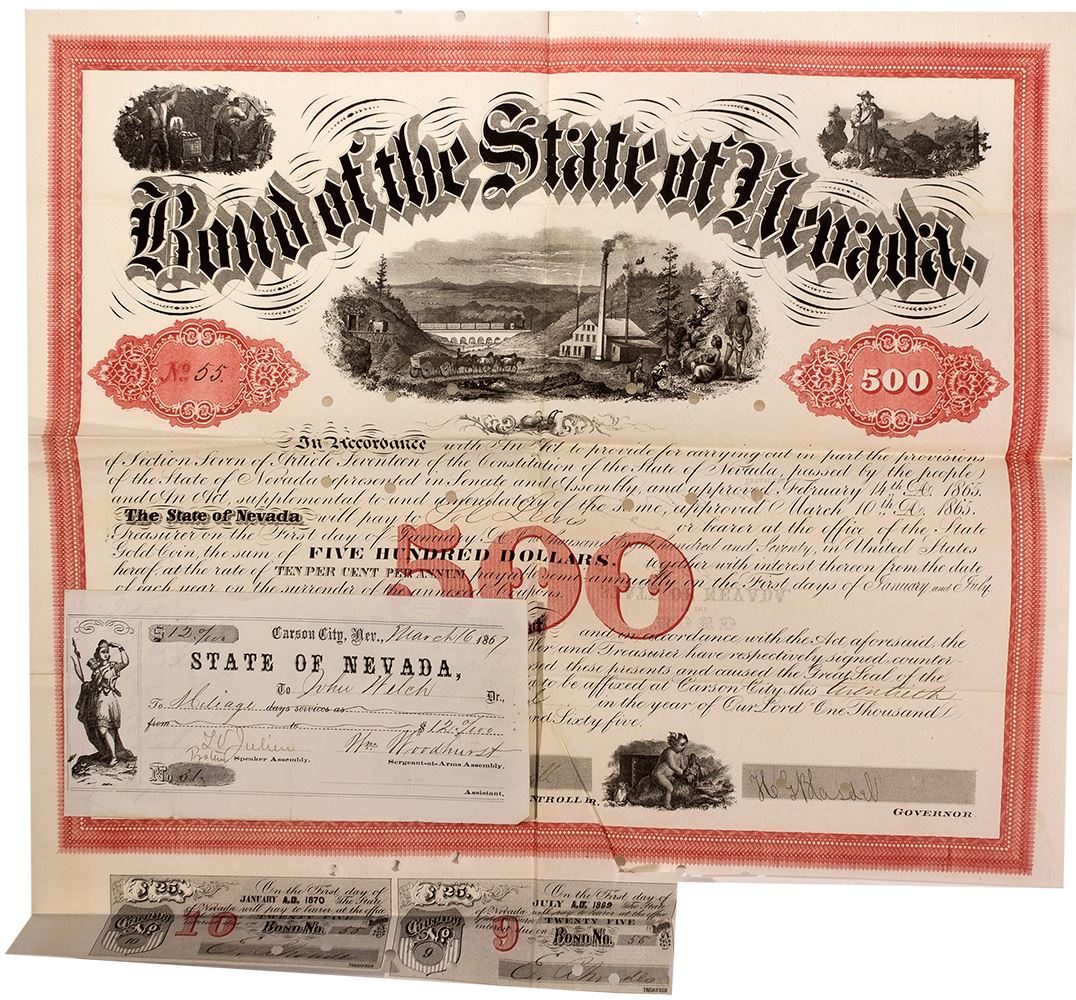 Bond of the State of Nevada.
No 55.
500
In Accordance with An Act to provide for carrying out in part the provisions
of Section Seven of Article Seventeen of the Constitution of the State of Nevada, passed by the people
of the State of Nevada represented in Senate and Assembly and approved February 14th A. 1865.
and An Act, supplemental to and amendatory of the same, approved March 10th A. 1865.
The State of Nevada will pay to or bearer at the office of the State
Treasurer on the First day of January Thousand Eight Hundred and Seventy, in United States
Gold Coin, the sum of FIVE HUNDRED DOLLARS. together with interest thereon from the date
hereof, at the rate of TEN PER CENT PER ANNUM, payable semi annually on the First days of January and July.
of each year on the surrender of the annexed Coupons.
500
and in accordance with the Act aforesaid the
and Treasurer have respectively signed, counter-
these presents and caused the Great Seal of the
to be affixed at Carson City, this twentieth
in the year of Our Lord One Thousand
Sixty five.
H G Blasdel
GOVERNOR
$12.00/100 Carson City, Nev., March 16 1867
STATE OF NEVADA,
To John Welch Dr.,
To Mileage days services as
from to $12.00/100
T V Julien Wm Woodhurst
Protem Speaker Assembly. Sergeant-at-Arms Assembly.
No. 51.
Assistant.
$25. On the First day of
JANUARY A.D. 1870 The State
of Nevada will pay to bearer at the office
TWENTY FIVE
Coupon No 10
10
Bond No. 55
E. Rhoades
TREASURER
$25. On the First day of
JULY A.D. 1869 The State
of Nevada will pay to bearer at the office
TWENTY FIVE
interest due on
Coupon No 9
9
Bond No. 55
E. Rhoades
TREASURER